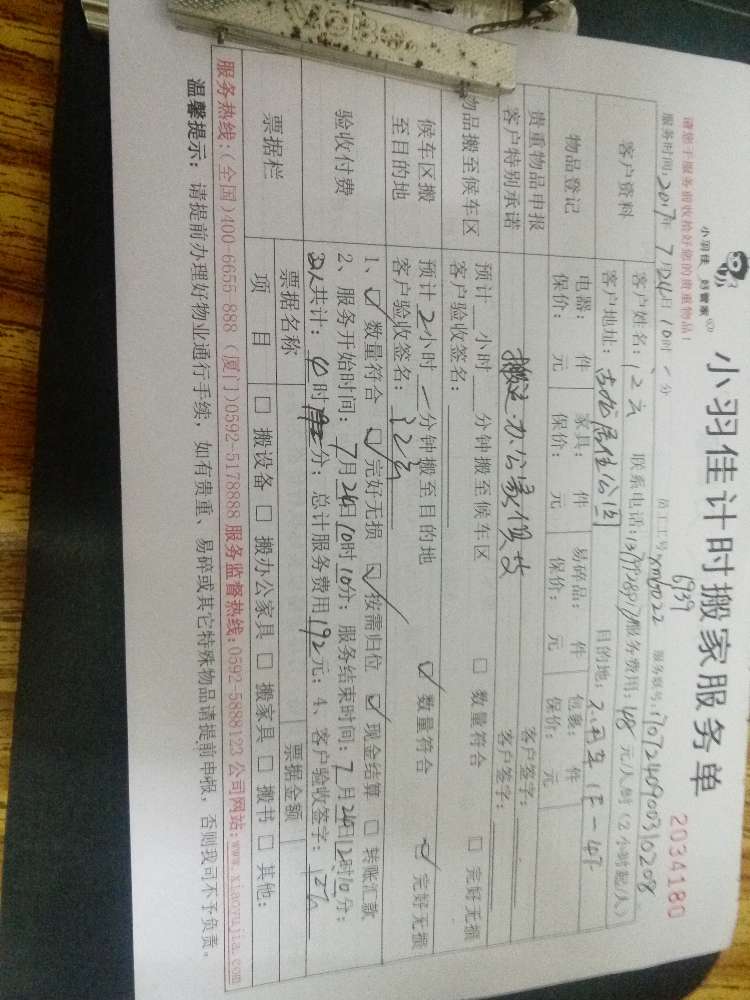 小羽佳 好管家
小羽佳计时搬家服务单
2034180
请您于服务前收拾好您的贵重物品!
服务时间:2017年7月24日10时 分 员工工号: 6939 服务账号:
客户资料
客户姓名: 联系电话: 服务费用:48元/人/时(2小时起/人)
客户地址: 目的地: 1F-4F
物品登记
电器: 件 家具: 件 易碎品: 件 包裹: 件
保价: 元 保价: 元 保价: 元 保价: 元
贵重物品申报 客户签字:
客户特别承诺 搬运.办公家俱 客户签字:
物品搬至候车区
预计 小时 分钟搬至候车区 □ 数量符合 □ 完好无损
客户验收签名:
候车区搬
至目的地
预计2小时 分钟搬至目的地 ☑ 数量符合 ☑ 完好无损
客户验收签名:
验收付费
1、☑ 数量符合 ☑ 完好无损 ☑ 按需归位 ☑ 现金结算 □ 转账汇款
2、服务开始时间:7月24日10时10分;服务结束时间:7月24日12时10分;
共计:4时 分;总计服务费用192元;4、客户验收签字:
票据栏
票据名称 票据金额
项 目 □ 搬设备 □ 搬办公家具 □ 搬家具 □ 搬书 □ 其他:
服务热线:(全国)400-6655 888 (厦门)0592-5178888 服务监督热线:0592-5888123 公司网站:www.xiaoyujia.com
温馨提示:请提前办理好物业通行手续,如有贵重、易碎或其它特殊物品请提前申报,否则我司不予负责。